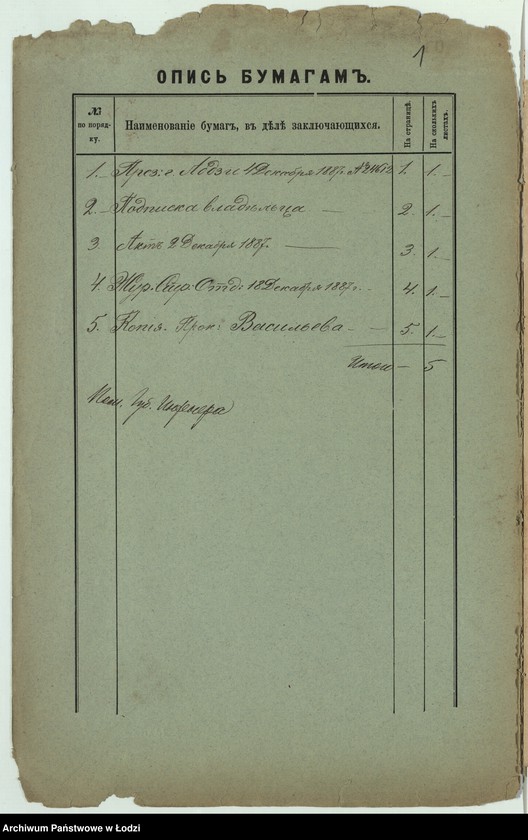 1
ОПИСЬ БУМАГАМЪ.
№ по поряд-ку. Наименованіе бумагъ, въ дѣлѣ заключающихся. На страницѣ. На сколькихъ листахъ.
1. През: г. Лодзи 4 Декабря 1887. № 24612 1. 1.
2. Подписка владѣльца — 2. 1.
3. Актъ 2 Декабря 1887. — 3. 1.
4. Жур. Стр: Отд: 18 Декабря 1887 г. 4. 1.
5. Копія. Прот: Васильева — 5. 1.
Итого — 5
Пом. Губ. Инженера
Archiwum Państwowe w Łodzi